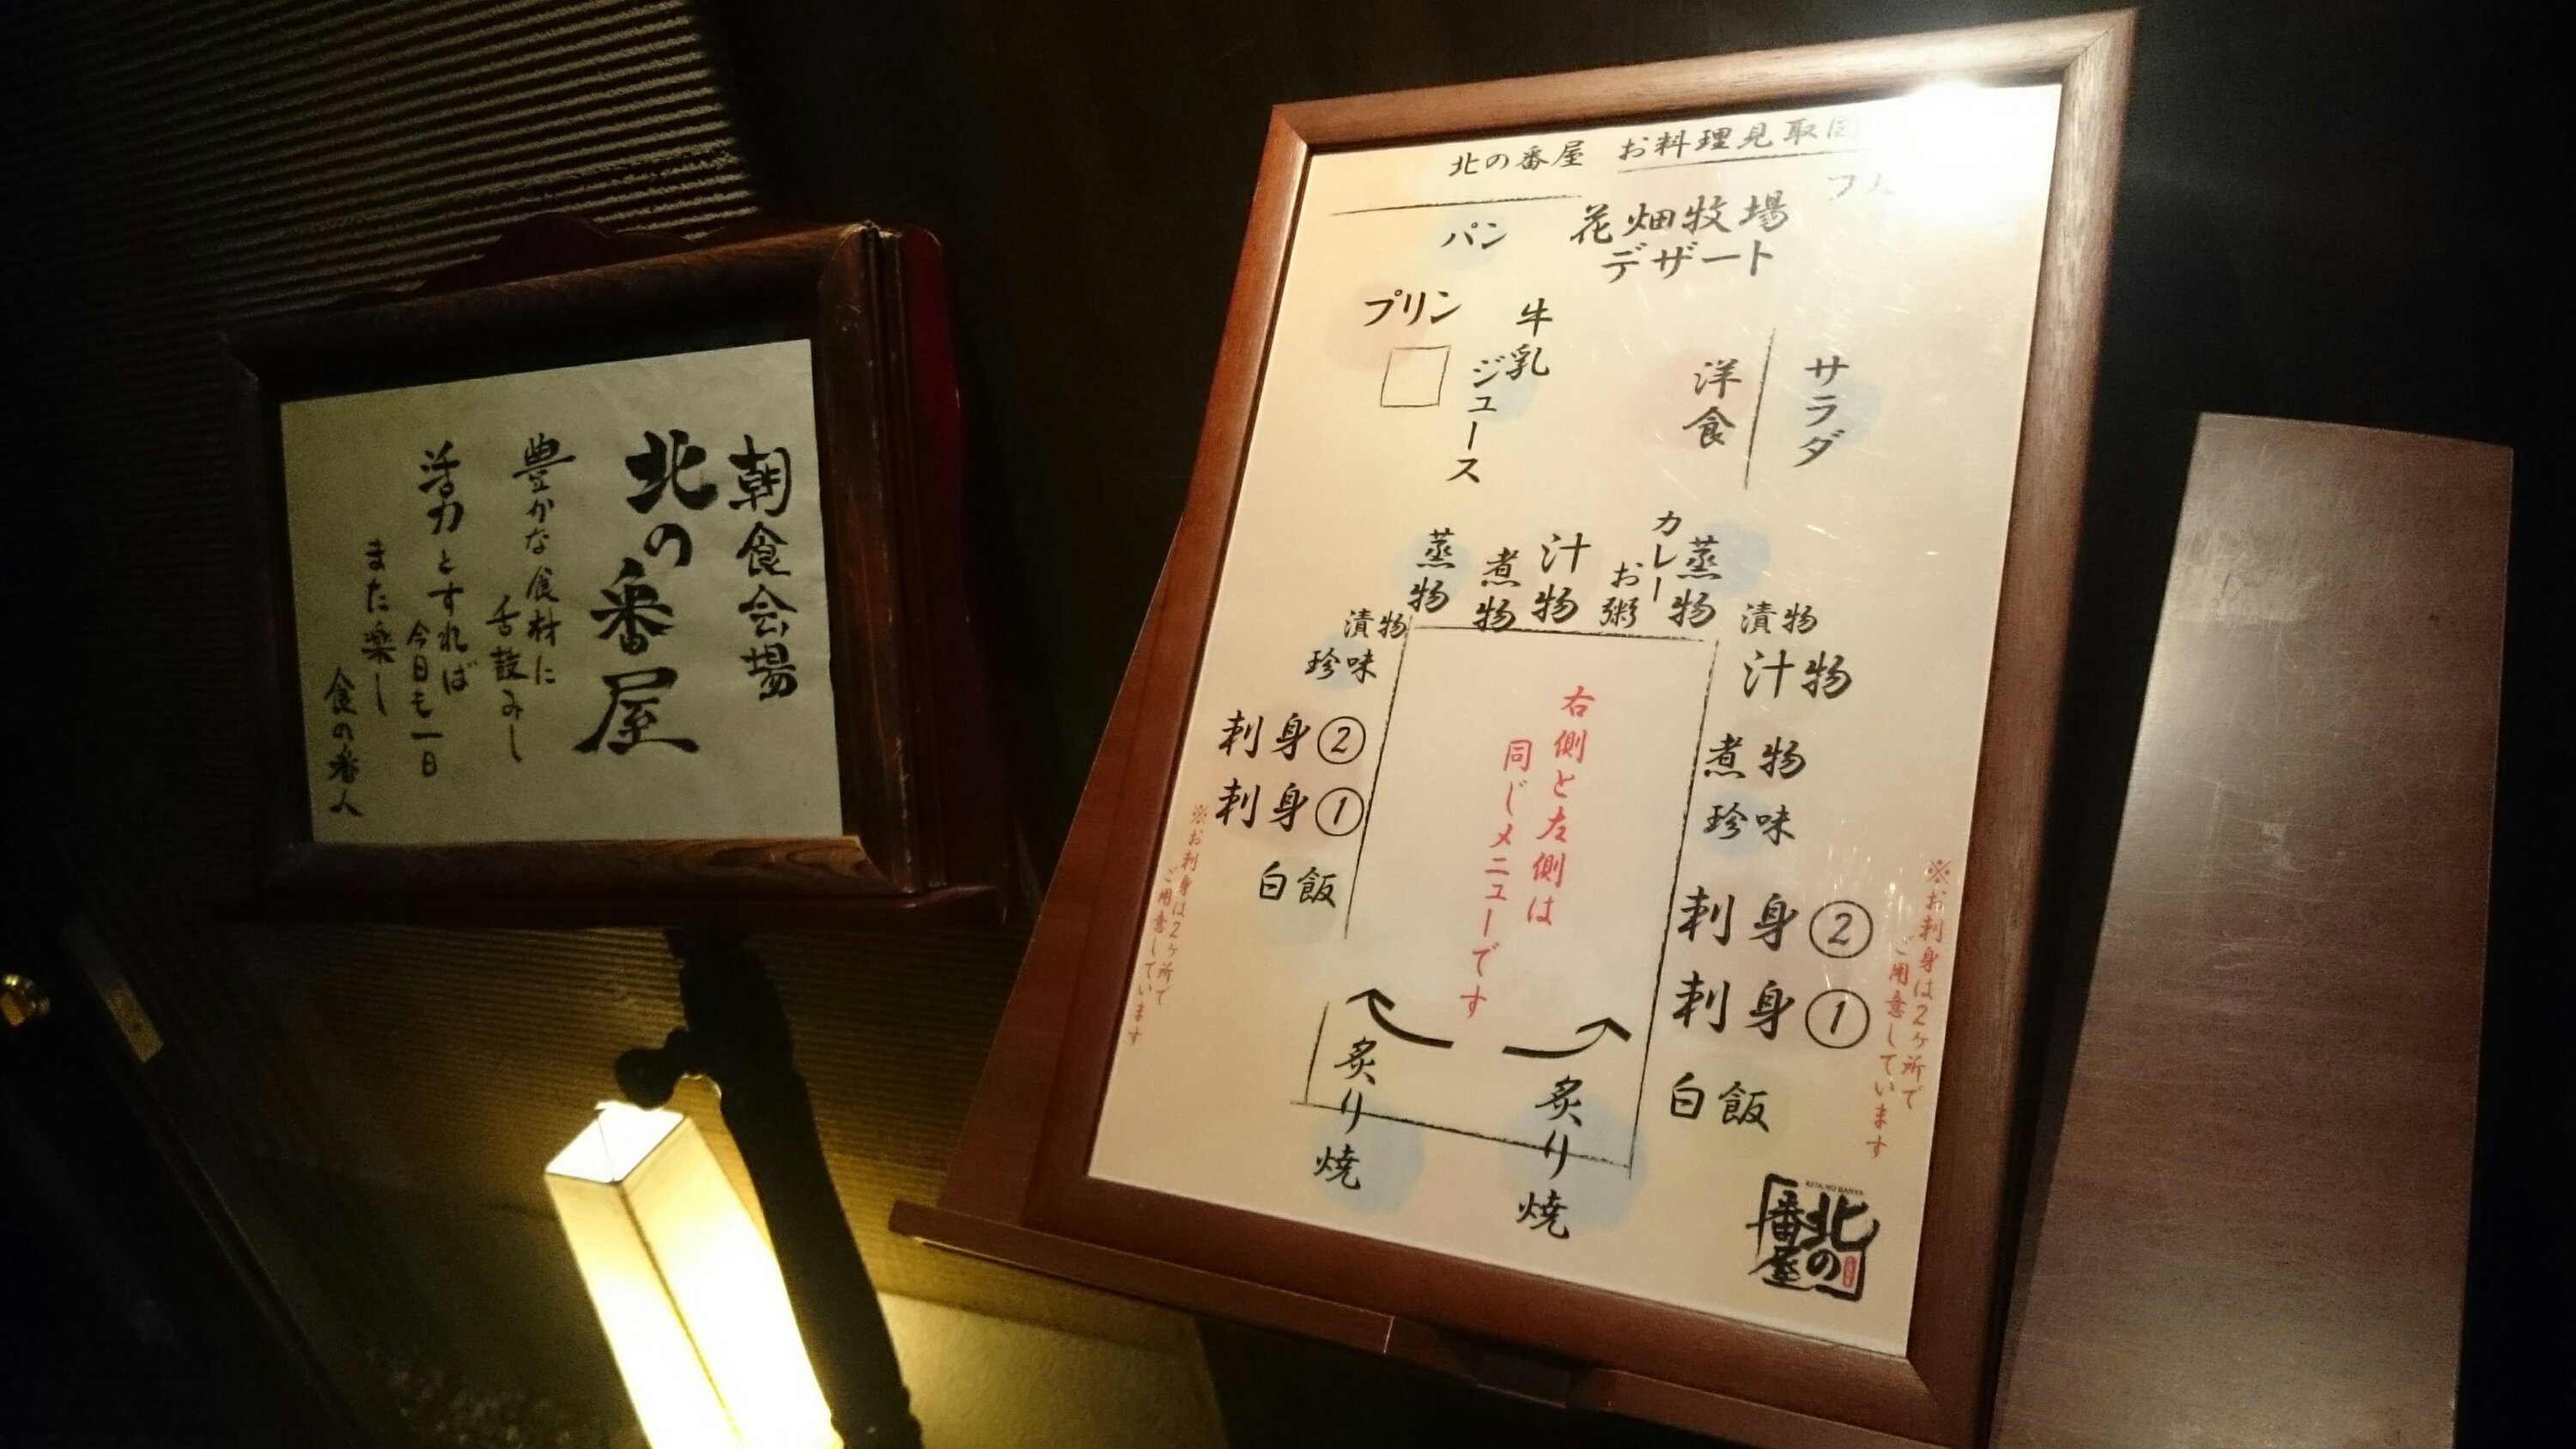 朝食会場
北の番屋
豊かな食材に
舌鼓みし
活力とすれば
今日も一日
また楽し
食の番人
北の番屋 お料理見取図
パン
花畑牧場
デザート
プリン
牛乳
ジュース
洋食
サラダ
蒸物
煮物
汁物
お粥
カレー
蒸物
漬物
珍味
刺身②
刺身①
白飯
※お刺身は2ヶ所で
ご用意しています
漬物
汁物
煮物
珍味
刺身②
刺身①
白飯
※お刺身は2ヶ所で
ご用意しています
右側と左側は
同じメニューです
炙り焼
炙り焼
KITA NO BANYA
北の
番屋